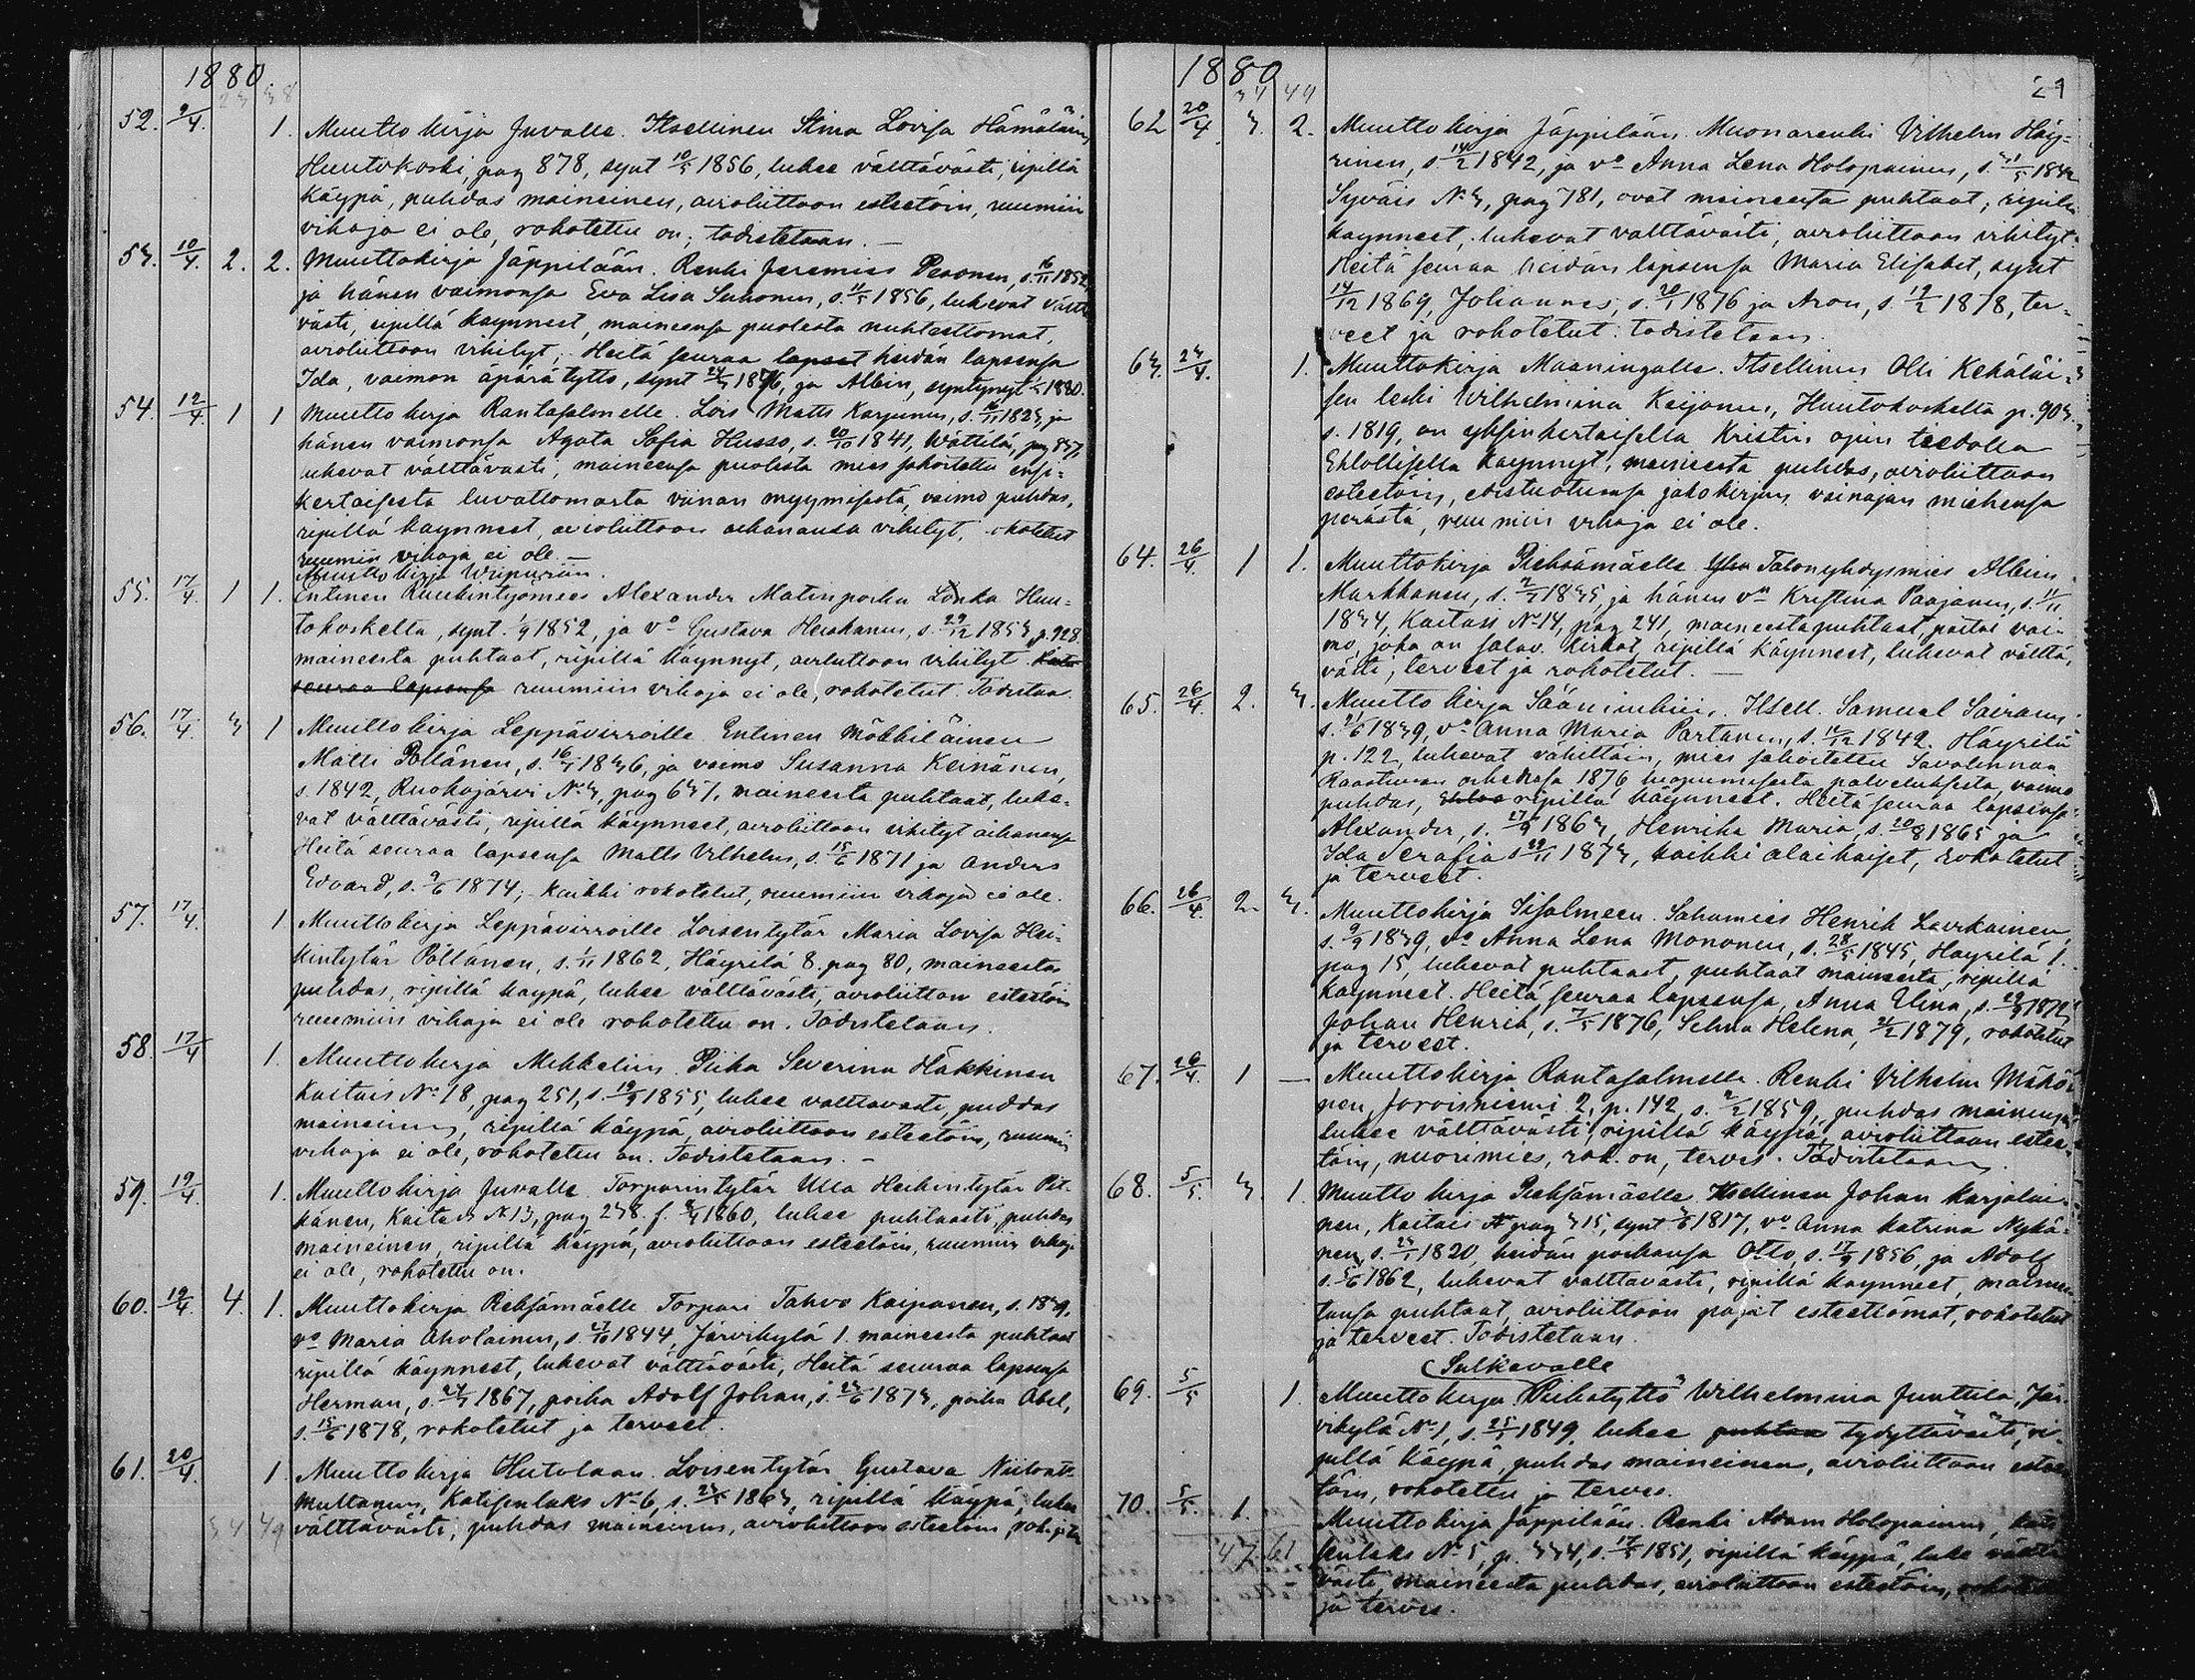 1880.
23 38
52. 9/4. 1. Muuttokirja Juvalle. Itsellinen Stina Lovisa Hämäläinen
Huutokoski, pag 878, synt 10/5 1856, lukee välttävästi, ripillä
käypä, puhdas maineinen, avioliittoon esteetöin, ruumiin
vikoja ei ole, rokotettu on; todistetaan. —
53. 10/4. 2. 2. Muuttokirja Jäppilään. Renki Jeremias Pesonen, s. 16/11 1852
ja hänen vaimonsa Eva Lisa Suhonen, s. 11/5 1856, lukevat vältt
västi, ripillä käynneet, maineensa puolesta nuhteettomat,
avioliittoon vihityt; Heitä seuraa lapset heidän lapsensa
Ida, vaimon äpärätyttö, synt 24/3 1876, ja Albin, syntynyt 1880.
54. 12/4. 1 1 Muuttokirja Rantasalmelle. Lois Matts Karpunen, s. 1823, ja
hänen vaimonsa Agata Sofia Husso, s. 20/10 1841, Wättilä, pag 837,
lukevat välttävästi, maineensa puolesta mies sakoitettu ensi-
kertaisesta luvattomasta viinan myymisestä, vaimo puhdas,
ripillä käynneet, avioliittoon aikanansa vihityt, rokotetut
ruumiin vikoja ei ole. —
Muuttokirja Wiipuriin.
55. 17/4. 1 1. Entinen Ruukintyömies Alexander Matinpoika Lönka Huu-
tokoskelta, synt. 1/9 1852, ja vo Gustava Heiskanen, s. 29/12 1853 p. 928
maineesta puhtaat, ripillä käynnyt, avioliittoon vihityt
seuraa lapsensa ruumiin vikoja ei ole, rokotetut. Todistaa
56. 17/4. 3 1 Muuttokirja Leppävirroille. Entinen Mökkiläinen
Matti Pöllänen, s. 16/1 1836, ja vaimo Susanna Keinänen,
s. 1842, Ruokojärvi No 3, pag 637, maineesta puhtaat, luke-
vat välttävästi, ripillä käynneet, avioliittoon vihityt aikanansa
Heitä seuraa lapsensa Matts Vilhelm, s. 15/6 1871 ja Anders
Edvard, s. 9/6 1874; kaikki rokotetut, ruumiin vikoja ei ole.
57. 17/4. 1 Muuttokirja Leppävirroille Loisentytär Maria Lovisa Hei-
kintytär Pöllänen, s. 1/11 1862, Häyrilä 8. pag 80, maineesta
puhdas, ripillä käypä, lukee välttävästi, avioliittoon esteetöin
ruumiin vikoja ei ole rokotettu on. Todistetaan.
58. 17/4 1. Muuttokirja Mikkeliin. Piika Severina Häkkinen
Kaitais No 18, pag 251, s. 19/9 1855, lukee välttävästi, puhdas
maineinen, ripillä käypä, avioliittoon esteetöin, ruumiin
vikoja ei ole, rokotettu on. Todistetaan. —
59. 19/4. 1. Muuttokirja Juvalle. Torparintytär Ulla Heikintytär Pit-
känen, Kaitais N 13, pag 238. s. 1860, lukee puhtaasti, puhdas
maineinen, ripillä käypä, avioliittoon esteetöin, ruumiin vikoja
ei ole, rokotettu on.
60. 19/4. 4. 1. Muuttokirja Pieksämäelle. Torpari Tahvo Kaipanen, s. 1839,
vo Maria Aholainen, s. 27/10 1844, Järvikylä 1. maineesta puhtaat
ripillä käynneet, lukevat välttävästi, Heitä seuraa lapsensa
Herman, s. 24/3 1867, poika Adolf Johan, s. 23/6 1873, poika Abel,
s. 15/6 1878, rokotetut ja terveet.
61. 20/4. 1. Muuttokirja Hirvolaan. Loisentytär Gustava
Multanen, Katisenlaks No 6, s. 1863, ripillä käypä, lukee
välttävästi, puhdas maineinen, avioliittoon esteetöin,
34 49
1880
34 44
29
62 20/4 3. 2. Muuttokirja Jäppilään. Muonarenki Vilhelm Häy-
rinen, s. 14/2 1842, ja vo Anna Lena Holopainen, s. 31/5 1842
Syväis No 3, pag 781, ovat maineesta puhtaat, ripillä
käynneet, lukevat välttävästi, avioliittoon vihityt.
Heitä seuraa heidän lapsensa Maria Elisabet, synt
14/12 1869, Johannes, s. 20/1 1876 ja Aron, s. 19/2 1878, ter-
veet ja rokotetut: todistetaan.
63. 23/4. 1. Muuttokirja Maaningalle. Itsellinen Olli Kekäläi-
sen leski Wilhelmina Keijonen, Huutokoskelta p. 903.
s. 1819, on yksinkertaisella Kristin opin tiedolla
Ehtoollisella käynnyt, maineesta puhdas, avioliittoon
esteetöin, edistuotuansa jakokirjan vainajan miehensä
perästä, ruumiin vikoja ei ole.
64. 26/4 1 1. Muuttokirja Pieksämäelle. Talonyhdysmies Albin
Markkanen, s. 7/7 1835, ja hänen vo Kristina Paajanen, s. 11/11
1834, Kaitais No 14, pag 241, maineesta puhtaat paitsi vai-
mo, joka on salav. kirkot, ripillä käynneet, lukevat välttä-
västi, terveet ja rokotetut. —
65. 26/4. 2. 3. Muuttokirja Sääminkiin. Itsell. Samuel Sairanen
s. 21/6 1839, vo Anna Maria Partanen, s. 12/12 1842. Häyrilä
p. 122, lukevat vähittäin, mies sakoitettu Savonlinnan
Raastuvan oikeudessa 1876 luopumisesta palveluksesta, vaimo
puhdas, ripillä käynneet. Heitä seuraa lapsensa:
Alexander, s. 27/9 1863, Henrika Maria, s. 20/8 1865 ja
Ida Serafia s 29/11 1873, kaikki alaikäiset, rokotetut
ja terveet.
66. 26/4. 2. 3. Muuttokirja Iisalmeen. Sahamies Henrik Laurkainen,
s. 9/9 1839, vo Anna Lena Mononen, s. 28/5 1845, Häyrilä 1.
pag 15, lukevat puhtaast, puhtaat maineesta, ripillä
käynneet. Heitä seuraa lapsensa, Anna Elina, s. 29/9 1872,
Johan Henrik, s. 7/5 1876, Selma Helena, 2/2 1879, rokotetut
ja terveet.
67. 26/4. 1 — Muuttokirja Rantasalmelle. Renki Vilhelm Mäkö-
nen, Joroisniemi 2, p. 142, s. 2/2 1859, puhdas maineinen
lukee välttävästi, ripillä käypä, avioliittoon estee-
töin, nuorimies, rok. on, terves. Todistetaan.
68. 5/5. 3. 1. Muuttokirja Pieksämäelle. Itsellinen Johan Karjalai-
nen, Kaitais pag 315, synt 3/6 1817, vo Anna Katrina Nykä-
nen, s. 23/1 1820, heidän poikansa Otto, s. 17/9 1856, ja Adolf
s. 5/6 1862, lukevat välttävästi, ripillä käynneet, mainee
tansa puhtaat, avioliittoon pojat esteettömät, rokotetut
ja terveet. Todistetaan.
Sulkavalle
69. 5/5 1. Muuttokirja Piikatyttö Wilhelmina Junttila, Jär-
vikylä No 1, s. 25/1 1849, lukee puhtaa tydyttävästi, ri-
pillä käypä, puhdas maineinen, avioliittoon estee
töin, rokotettu ja terves.
70. 5/5. 1. Muuttokirja Jäppilään. Renki Adam Holopainen, Kati
senlaks No 5, p. 334, s. 17/5 1851, ripillä käypä, luke vältt
västi, maineesta puhdas, avioliittoon esteetöin,
ja terves.
47 61